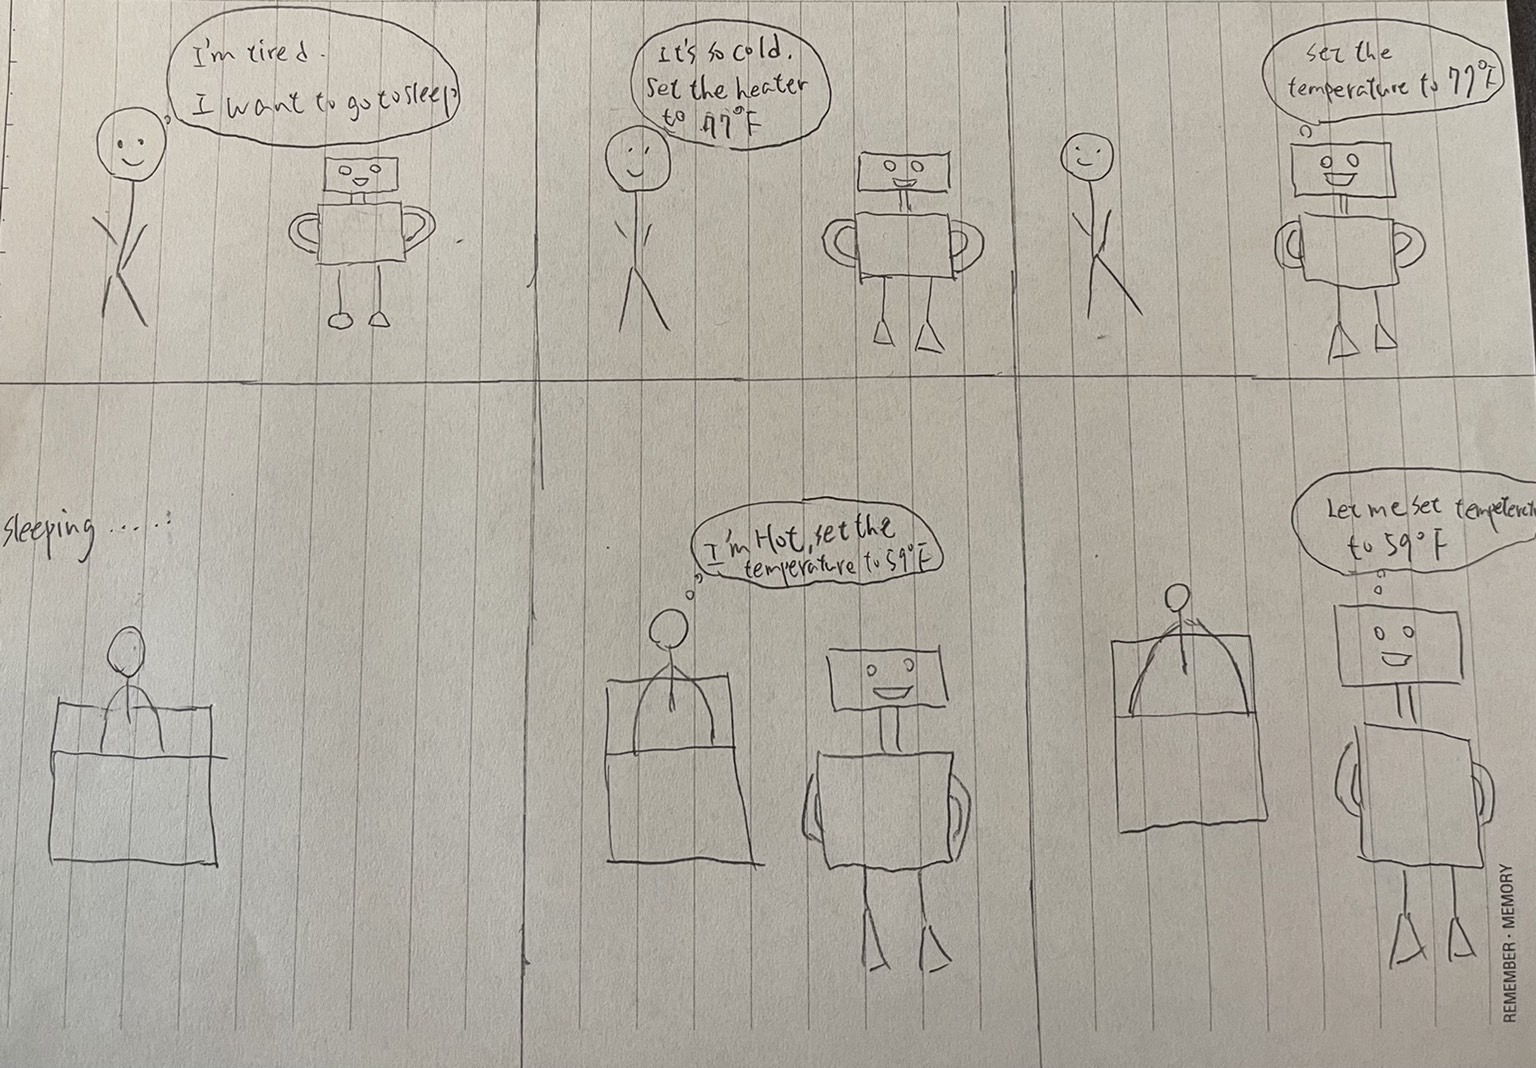 I'm tired.
I want to go to sleep
It's so cold.
Set the heater
to 77°F
Set the
temperature to 77°F
sleeping .....
I'm Hot, set the
temperature to 59°F
Let me set
to 59°F
REMEMBER · MEMORY